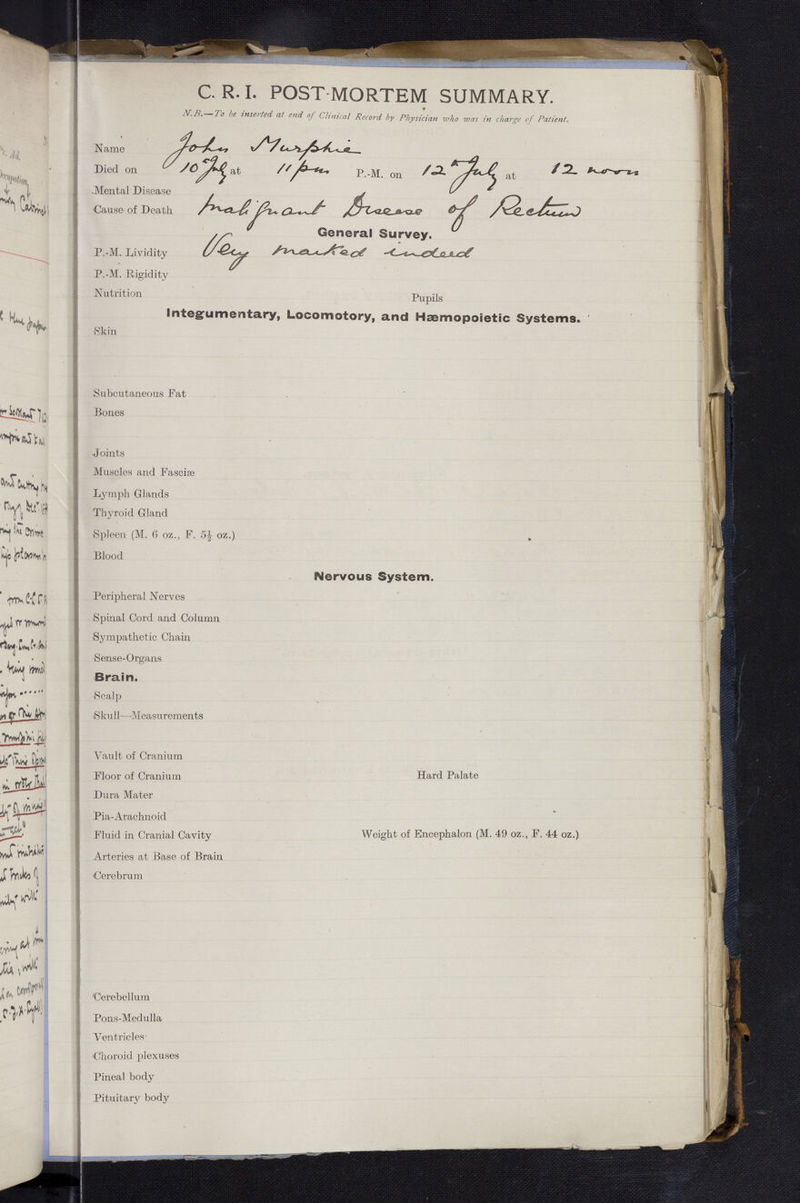 C. R. I. POST-MORTEM SUMMARY.
N.B.—To be inserted at end of Clinical Record by Physician who was in charge of Patient.
Name John Murphie
Died on 10th July at 11 pm P.-M. on 12th July at 12 noon
Mental Disease
Cause of Death Malignant Disease of Rectum
General Survey.
P.-M. Lividity Very marked indeed
P.-M. Rigidity
Nutrition Pupils
Integumentary, Locomotory, and Hæmopoietic Systems.
Skin
Subcutaneous Fat
Bones
Joints
Muscles and Fasciæ
Lymph Glands
Thyroid Gland
Spleen (M. 6 oz., F. 5½ oz.)
Blood
Nervous System.
Peripheral Nerves
Spinal Cord and Column
Sympathetic Chain
Sense-Organs
Brain.
Scalp
Skull—Measurements
Vault of Cranium
Floor of Cranium Hard Palate
Dura Mater
Pia-Arachnoid
Fluid in Cranial Cavity Weight of Encephalon (M. 49 oz., F. 44 oz.)
Arteries at Base of Brain
Cerebrum
Cerebellum
Pons-Medulla
Ventricles
Choroid plexuses
Pineal body
Pituitary body